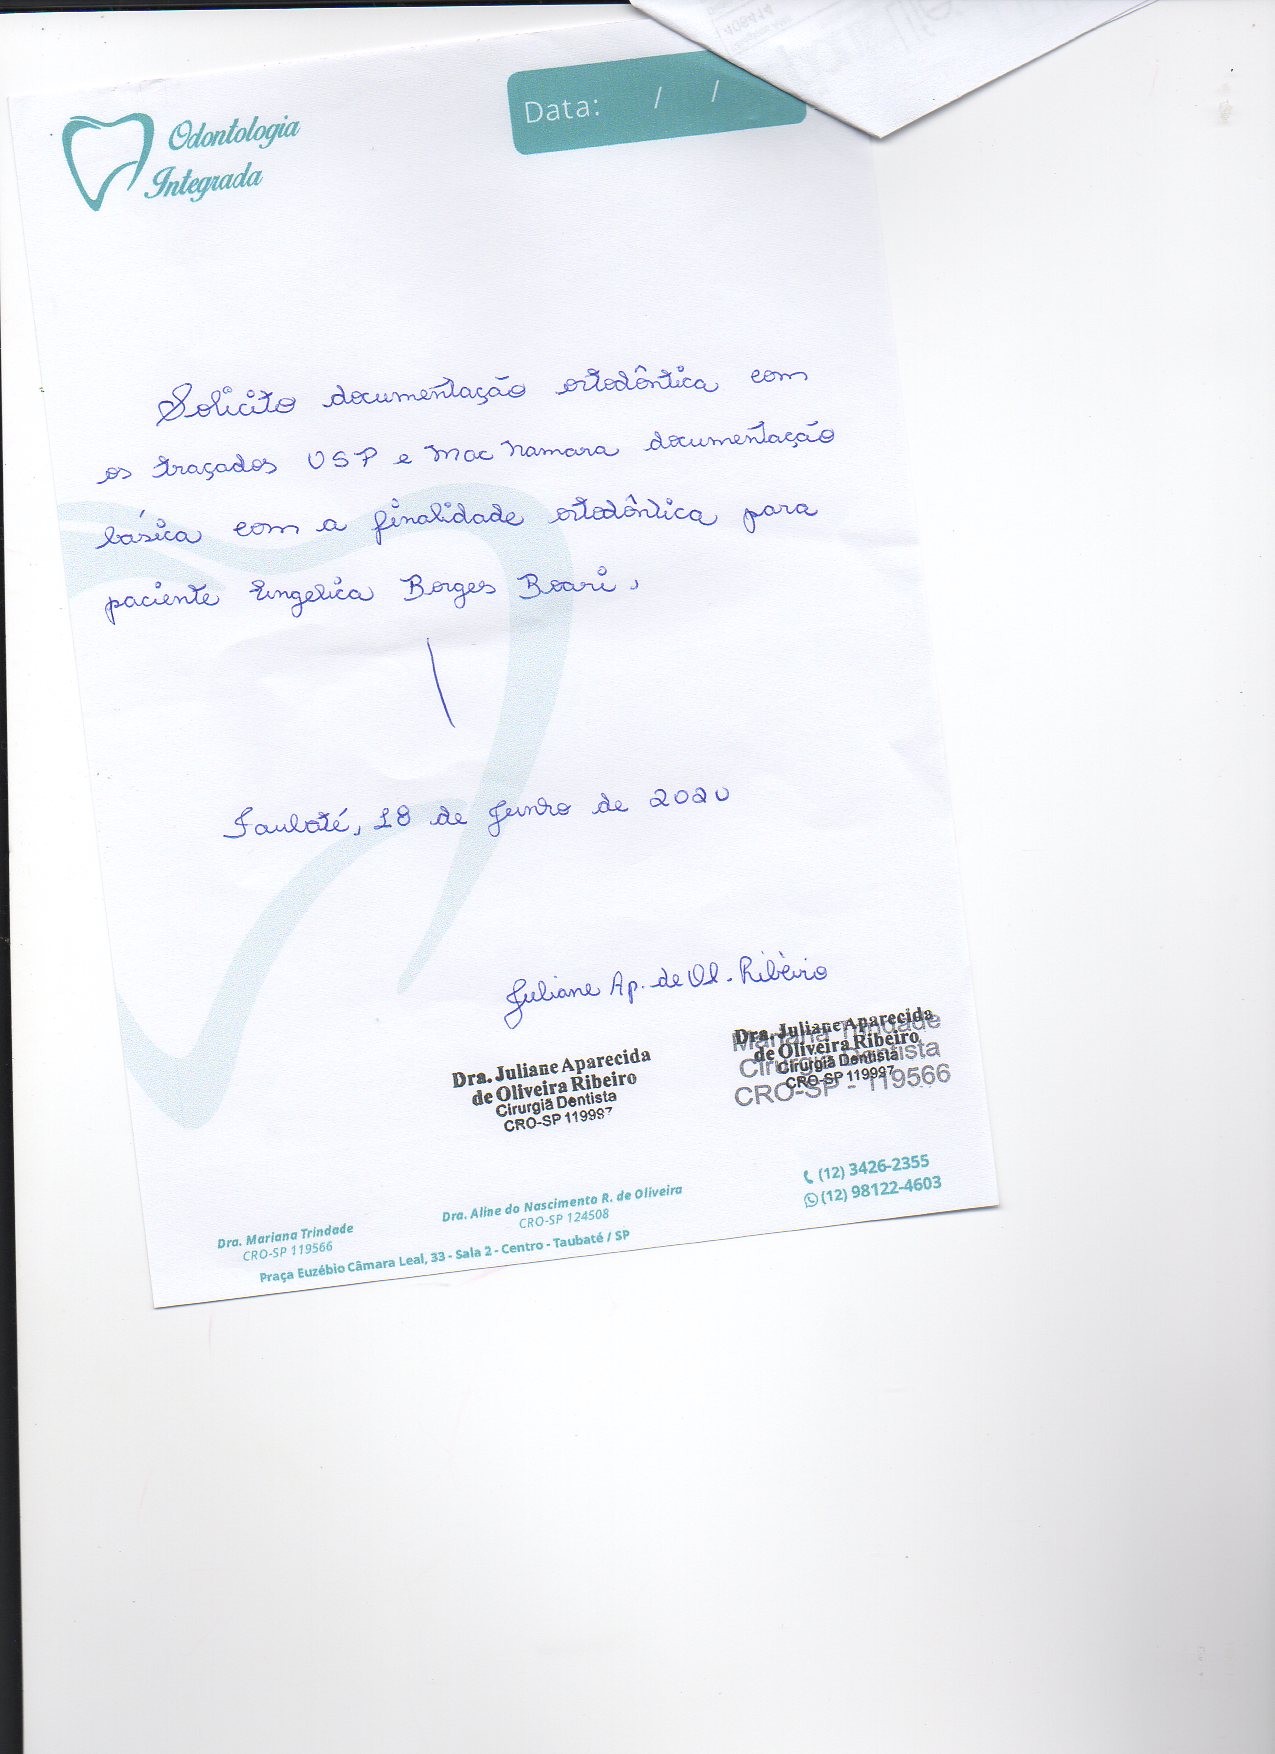 Odontologia
Integrada
Data: / /
Solicito documentação ortodôntica com
os traçados USP e Mac Namara documentação
básica com a finalidade ortodôntica para
paciente Angelica Borges Boari.
Taubaté, 18 de Junho de 2020
Juliane Ap. de Ol. Ribeiro
Dra. Juliane Aparecida
de Oliveira Ribeiro
Cirurgiã Dentista
CRO-SP 119997
Dra. Juliane Aparecida
de Oliveira Ribeiro
Cirurgiã Dentista
CRO-SP 119997
Mariana Trindade
Cirurgiã Dentista
CRO-SP - 119566
(12) 3426-2355
(12) 98122-4603
Dra. Mariana Trindade
CRO-SP 119566
Dra. Aline do Nascimento R. de Oliveira
CRO-SP 124508
Praça Euzébio Câmara Leal, 33 - Sala 2 - Centro - Taubaté / SP